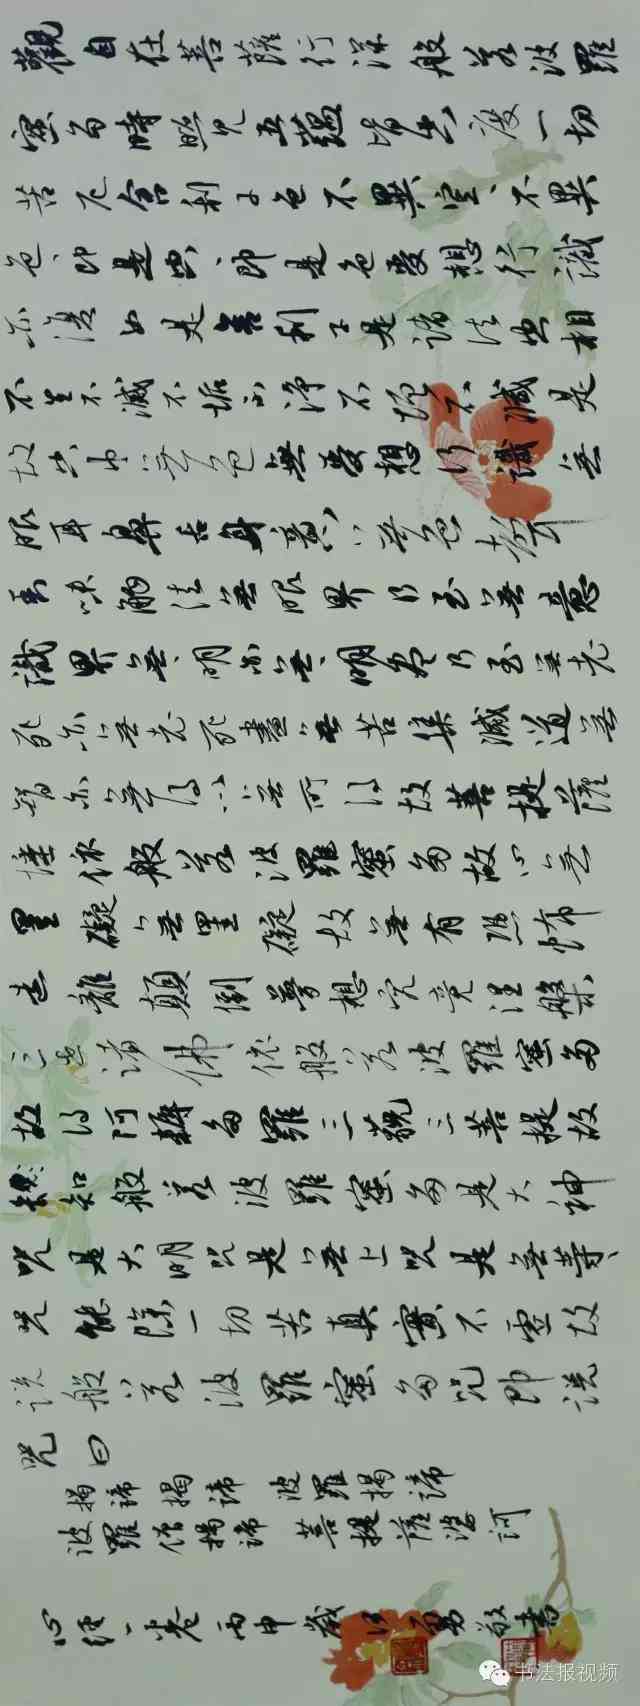 觀自在菩薩行深般若波羅
蜜多時照見五蘊皆空度一切
苦厄舍利子色不異空、不異
色、即是空、即是色受想行識
亦復如是舍利子是諸法空相
不生不滅不垢不淨不增不減是
故空中無色無受想行識無
眼耳鼻舌身意無色聲
香味觸法無眼界乃至無意
識界無、明亦無、明盡乃至無老
死亦無老死盡無苦集滅道無
智亦無得以無所得故菩提薩
埵依般若波羅蜜多故心無
罣礙無罣礙故無有恐怖
遠離顛倒夢想究竟涅槃
三世諸佛依般若波羅蜜多
故得阿耨多羅三藐三菩提故
知般若波羅蜜多是大神
咒是大明咒是無上咒是無等、
咒能除一切苦真實不虛故
說般若波羅蜜多咒即說
咒曰
揭諦揭諦 波羅揭諦
波羅僧揭諦 菩提薩婆訶
心經一卷 丙申歲 勇敬書
书法报视频